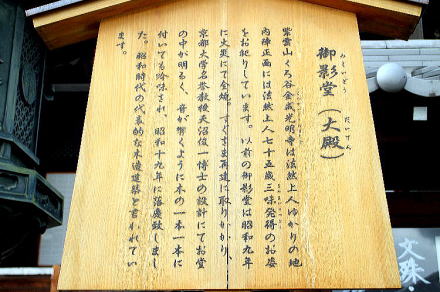 御影堂(大殿)
みえいどう
だいでん
紫雲山くろ谷金戒光明寺は法然上人ゆかりの地
内陣正面には法然上人七十五歳三昧発得のお姿
をお祀りしています。以前の御影堂は昭和九年
に火災にて全焼。すぐさま再建に取りかかり、
京都大学名誉教授天沼俊一博士の設計にてお堂
の中が明るく、音が響くように木の一本一本に
付いても吟味され、昭和十九年に落慶致しまし
た。昭和時代の代表的な木造建築と言われてい
ます。
文殊